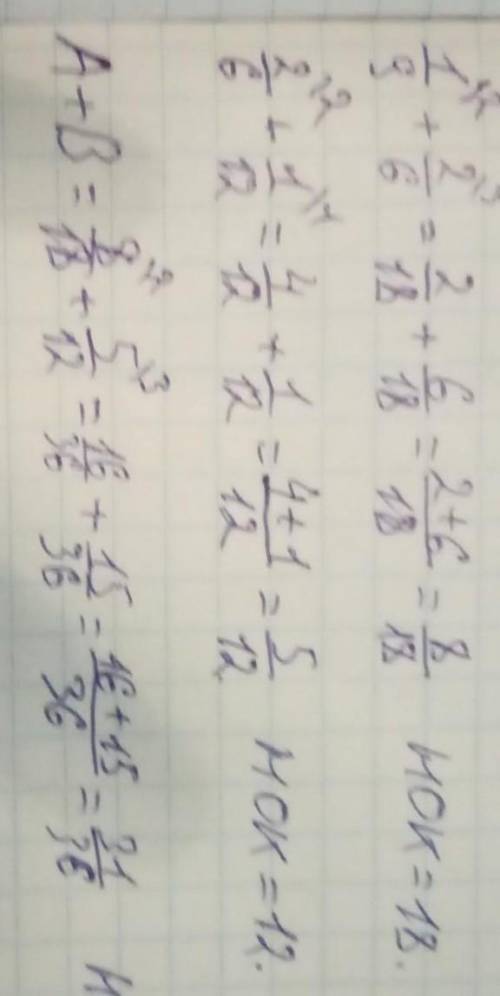 1/9 ×2 + 2/6 ×3 = 2/18 + 6/18 = 2+6/18 = 8/18 НОК = 18.
2/6 ×2 + 1/12 ×1 = 4/12 + 1/12 = 4+1/12 = 5/12 НОК = 12.
А + В = 8/18 ×2 + 5/12 ×3 = 16/36 + 15/36 = 16+15/36 = 31/36 Н